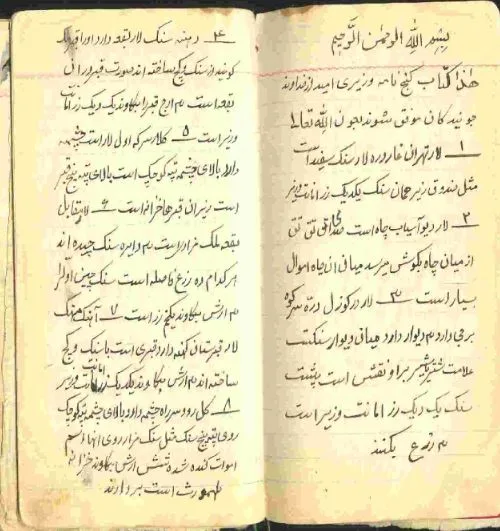 بسم الله الرحمن الرحیم
هذا کتاب گنج نامه وزیری امید از خداوند
جویندگان موفق شوند بعون الله تعالی
۱ لار تهران غار و ره لار سنگ سفید است
مثل صندوق زیر همان سنگ یک دیک زر امانت وزیر
۲ لار دیو آسیاب چاه است صدای تق تق
از میان چاه بگوش میرسد میانی آن چاه اموال
بسیار است ۳ لار در کوزل دره سرکوه
برجی دارد هم دیوار دارد میانی دیوار سنگیت
علامت شمشیر بر او نقش است پشت
سنگ یک دیک زر امانت وزیر است
هم زرع بکنند
۴ سنگ لار بقعه دارد
گویند از سنگ و گچ ساخته اند صورت قبر در آن
بقعه است هم ارج قبر را بکاوند یک دیک زر امانت
وزیر است ۵ کلارسر که اول لار است چشمه
دارد بالای چشمه تپه کوچک است بالای تپه پنج قبر
است زیر آن قبرها خزانه است ۶ لار مقابل
بقعه ملک مزار در است هم دایره سنگ چیده اند
هر کدام ده زرع فاصله است سنگ چین اول را
هم ارش بکاوند یک خم زر است ۷
لار قبرستان کهنه دارد قبری است با سنگ و گچ
ساخته اند هم ارش بکاوند یک دیک زر امانت وزیر
۸ کل رود سر راه چشمه دارد بالای چشمه تپه کوچک
روی تپه پنج سنگ مثل سنگ مزار روی آنها اسم
اموات کنده شده شش ارش بکاوند خزانه
طهمورث است بردارند